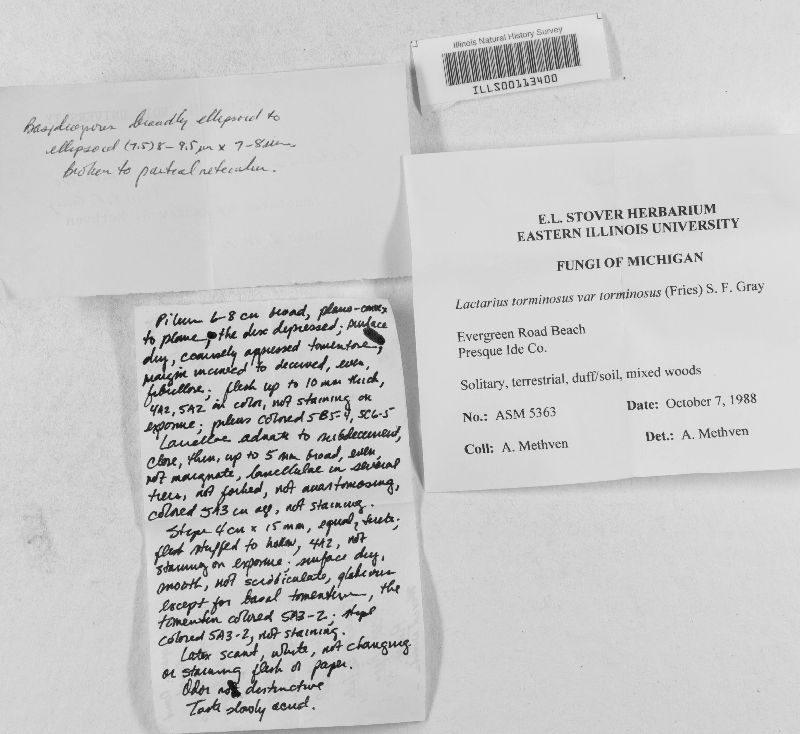 Illinois Natural History Survey
ILLS00113400
Basidiospores broadly ellipsoid to
ellipsoid (7.5) 8-9.5 µm x 7-8 µm
broken to partial reticulum.
E.L. STOVER HERBARIUM
EASTERN ILLINOIS UNIVERSITY
FUNGI OF MICHIGAN
Lactarius torminosus var torminosus (Fries) S. F. Gray
Evergreen Road Beach
Presque Ide Co.
Solitary, terrestrial, duff/soil, mixed woods
No.: ASM 5363 Date: October 7, 1988
Coll: A. Methven Det.: A. Methven
Pileus 6-8 cm broad, plano-convex
to plane, the disc depressed; surface
dry, coarsely appressed tomentose;
margin incurved to decurved, even,
fibrillose; flesh up to 10 mm thick,
4A2, 5A2 in color, not staining on
exposure; pileus colored 5B5-4, 5C6-5
Lamellae adnate to subdecurrent,
close, thin, up to 5 mm broad, even,
not marginate, lamellulae in several
tiers, not forked, not anastomosing,
colored 5A3 in age, not staining.
Stipe 4 cm x 15 mm, equal, terete;
flesh stuffed to hollow, 4A2, not
staining on exposure; surface dry,
smooth, not scrobiculate, glabrous
except for basal tomentum, the
tomentum colored 5A3-2; stipe
colored 5A3-2, not staining.
Latex scant, white, not changing
or staining flesh or paper.
Odor not distinctive
Taste slowly acrid.